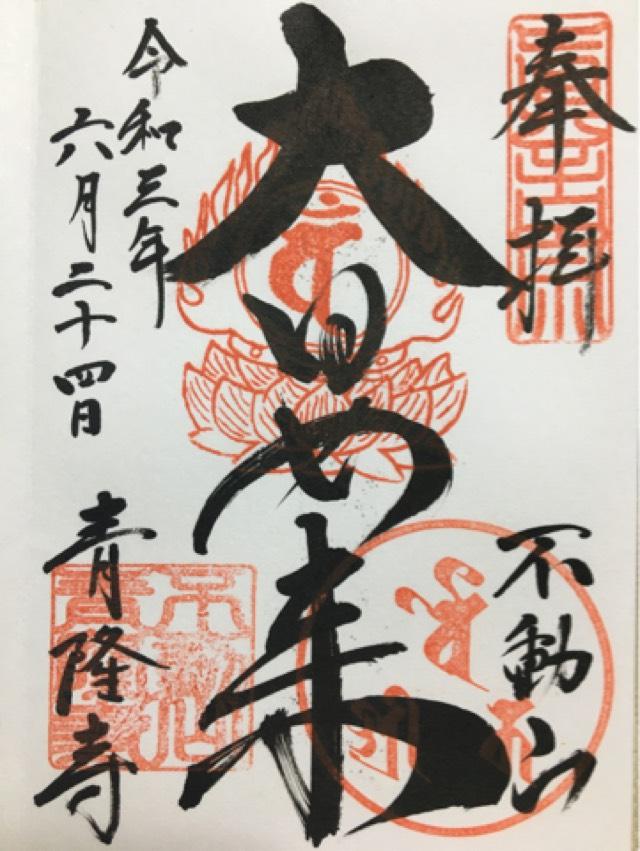 奉拝
不動山
大日如来
令和三年
六月二十四日
青隆寺